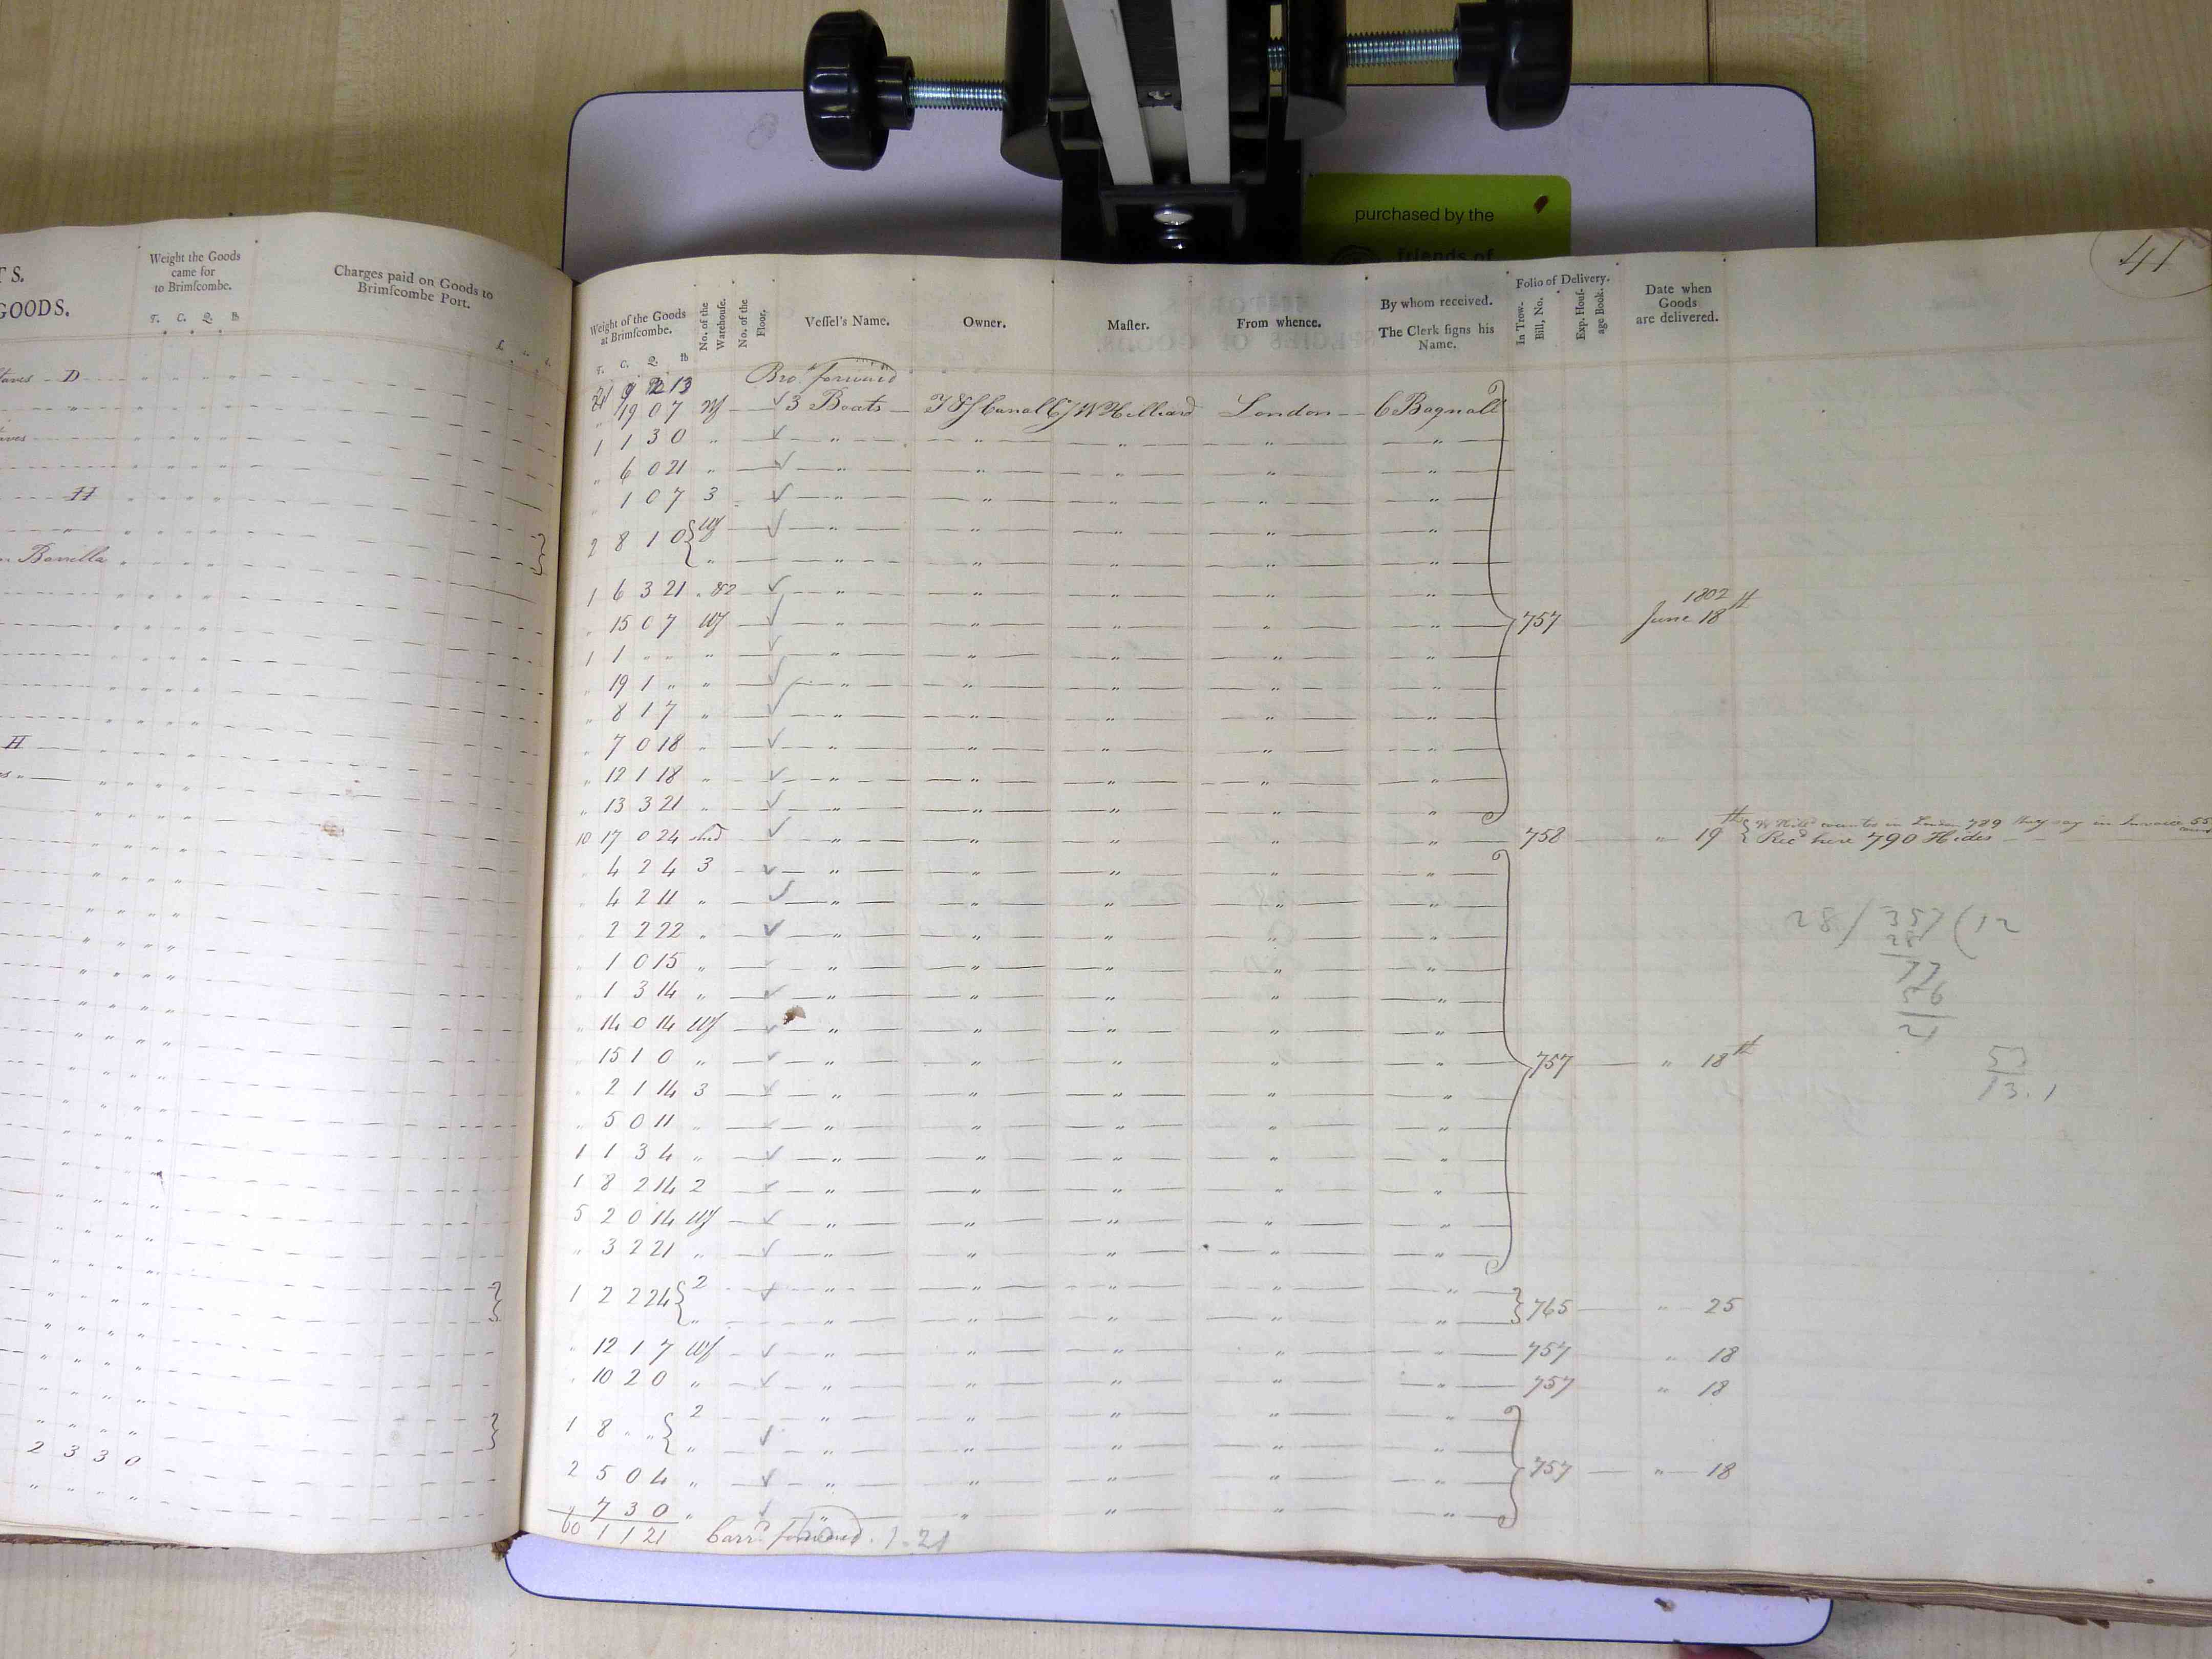 purchased by the
Friends of
TS.
GOODS.
Weight the Goods
came for
to Brimſcombe.
T. C. Q. lb
Charges paid on Goods to
Brimſcombe Port.
Staves - D
H
Barrilla
H
2 3 3 0
41
Weight of the Goods
at Brimſcombe.
T. C. Q. lb
No. of the
Warehouſe.
No. of the
Floor.
Veſſel's Name.
Owner.
Maſter.
From whence.
By whom received.
The Clerk ſigns his
Name.
Folio of Delivery.
In Trow-
Bill, No.
Exp. Houſ-
age Book.
Date when
Goods
are delivered.
Bro. forward
" 19 0 7 Wf ✓ 3 Boats London C Bagnall
1 1 3 0 " ✓ " " " " "
" 6 0 21 " ✓ " " " " "
" 1 0 7 3 ✓ " " " " "
2 8 1 0 { Wf ✓ " " " " "
" " " " " "
1 6 3 21 " &2 ✓ " " " " "
" 15 0 7 Wf ✓ " " " " " 757 1802 June 18th
1 1 " " " ✓ " " " " "
" 19 1 " " ✓ " " " " "
" 8 1 7 " ✓ " " " " "
" 7 0 18 " ✓ " " " " "
" 12 1 18 " ✓ " " " " "
" 13 3 21 " ✓ " " " " "
10 17 0 24 shed ✓ " " " " " 758 " 19th { in London 789 they say in Invoice 55
Recd here 790 Hides
" 4 2 4 3 ✓ " " " " "
" 4 2 11 " ✓ " " " " "
" 2 2 22 " ✓ " " " " "
" 1 0 15 " ✓ " " " " "
" 1 3 14 " ✓ " " " " "
" 14 0 14 Wf ✓ " " " " "
" 15 1 0 " ✓ " " " " " 757 " 18th
" 2 1 14 3 ✓ " " " " "
" 5 0 11 " ✓ " " " " "
1 1 3 4 " ✓ " " " " "
1 8 2 14 2 ✓ " " " " "
5 2 0 14 Wf ✓ " " " " "
" 3 2 21 " ✓ " " " " "
1 2 2 24 { 2 ✓ " " " " " } 765 " 25
" " " " " "
" 12 1 7 Wf ✓ " " " " " 757 " 18
" 10 2 0 " ✓ " " " " " 757 " 18
1 8 " " { 2 ✓ " " " " "
" " " " " "
2 5 0 4 " ✓ " " " " " 757 " 18
" 7 3 0 " ✓ " " " " "
60 1 1 21 Carrd forward. 1.21
28 / 357 ( 12
28
77
56
21
53
13.1